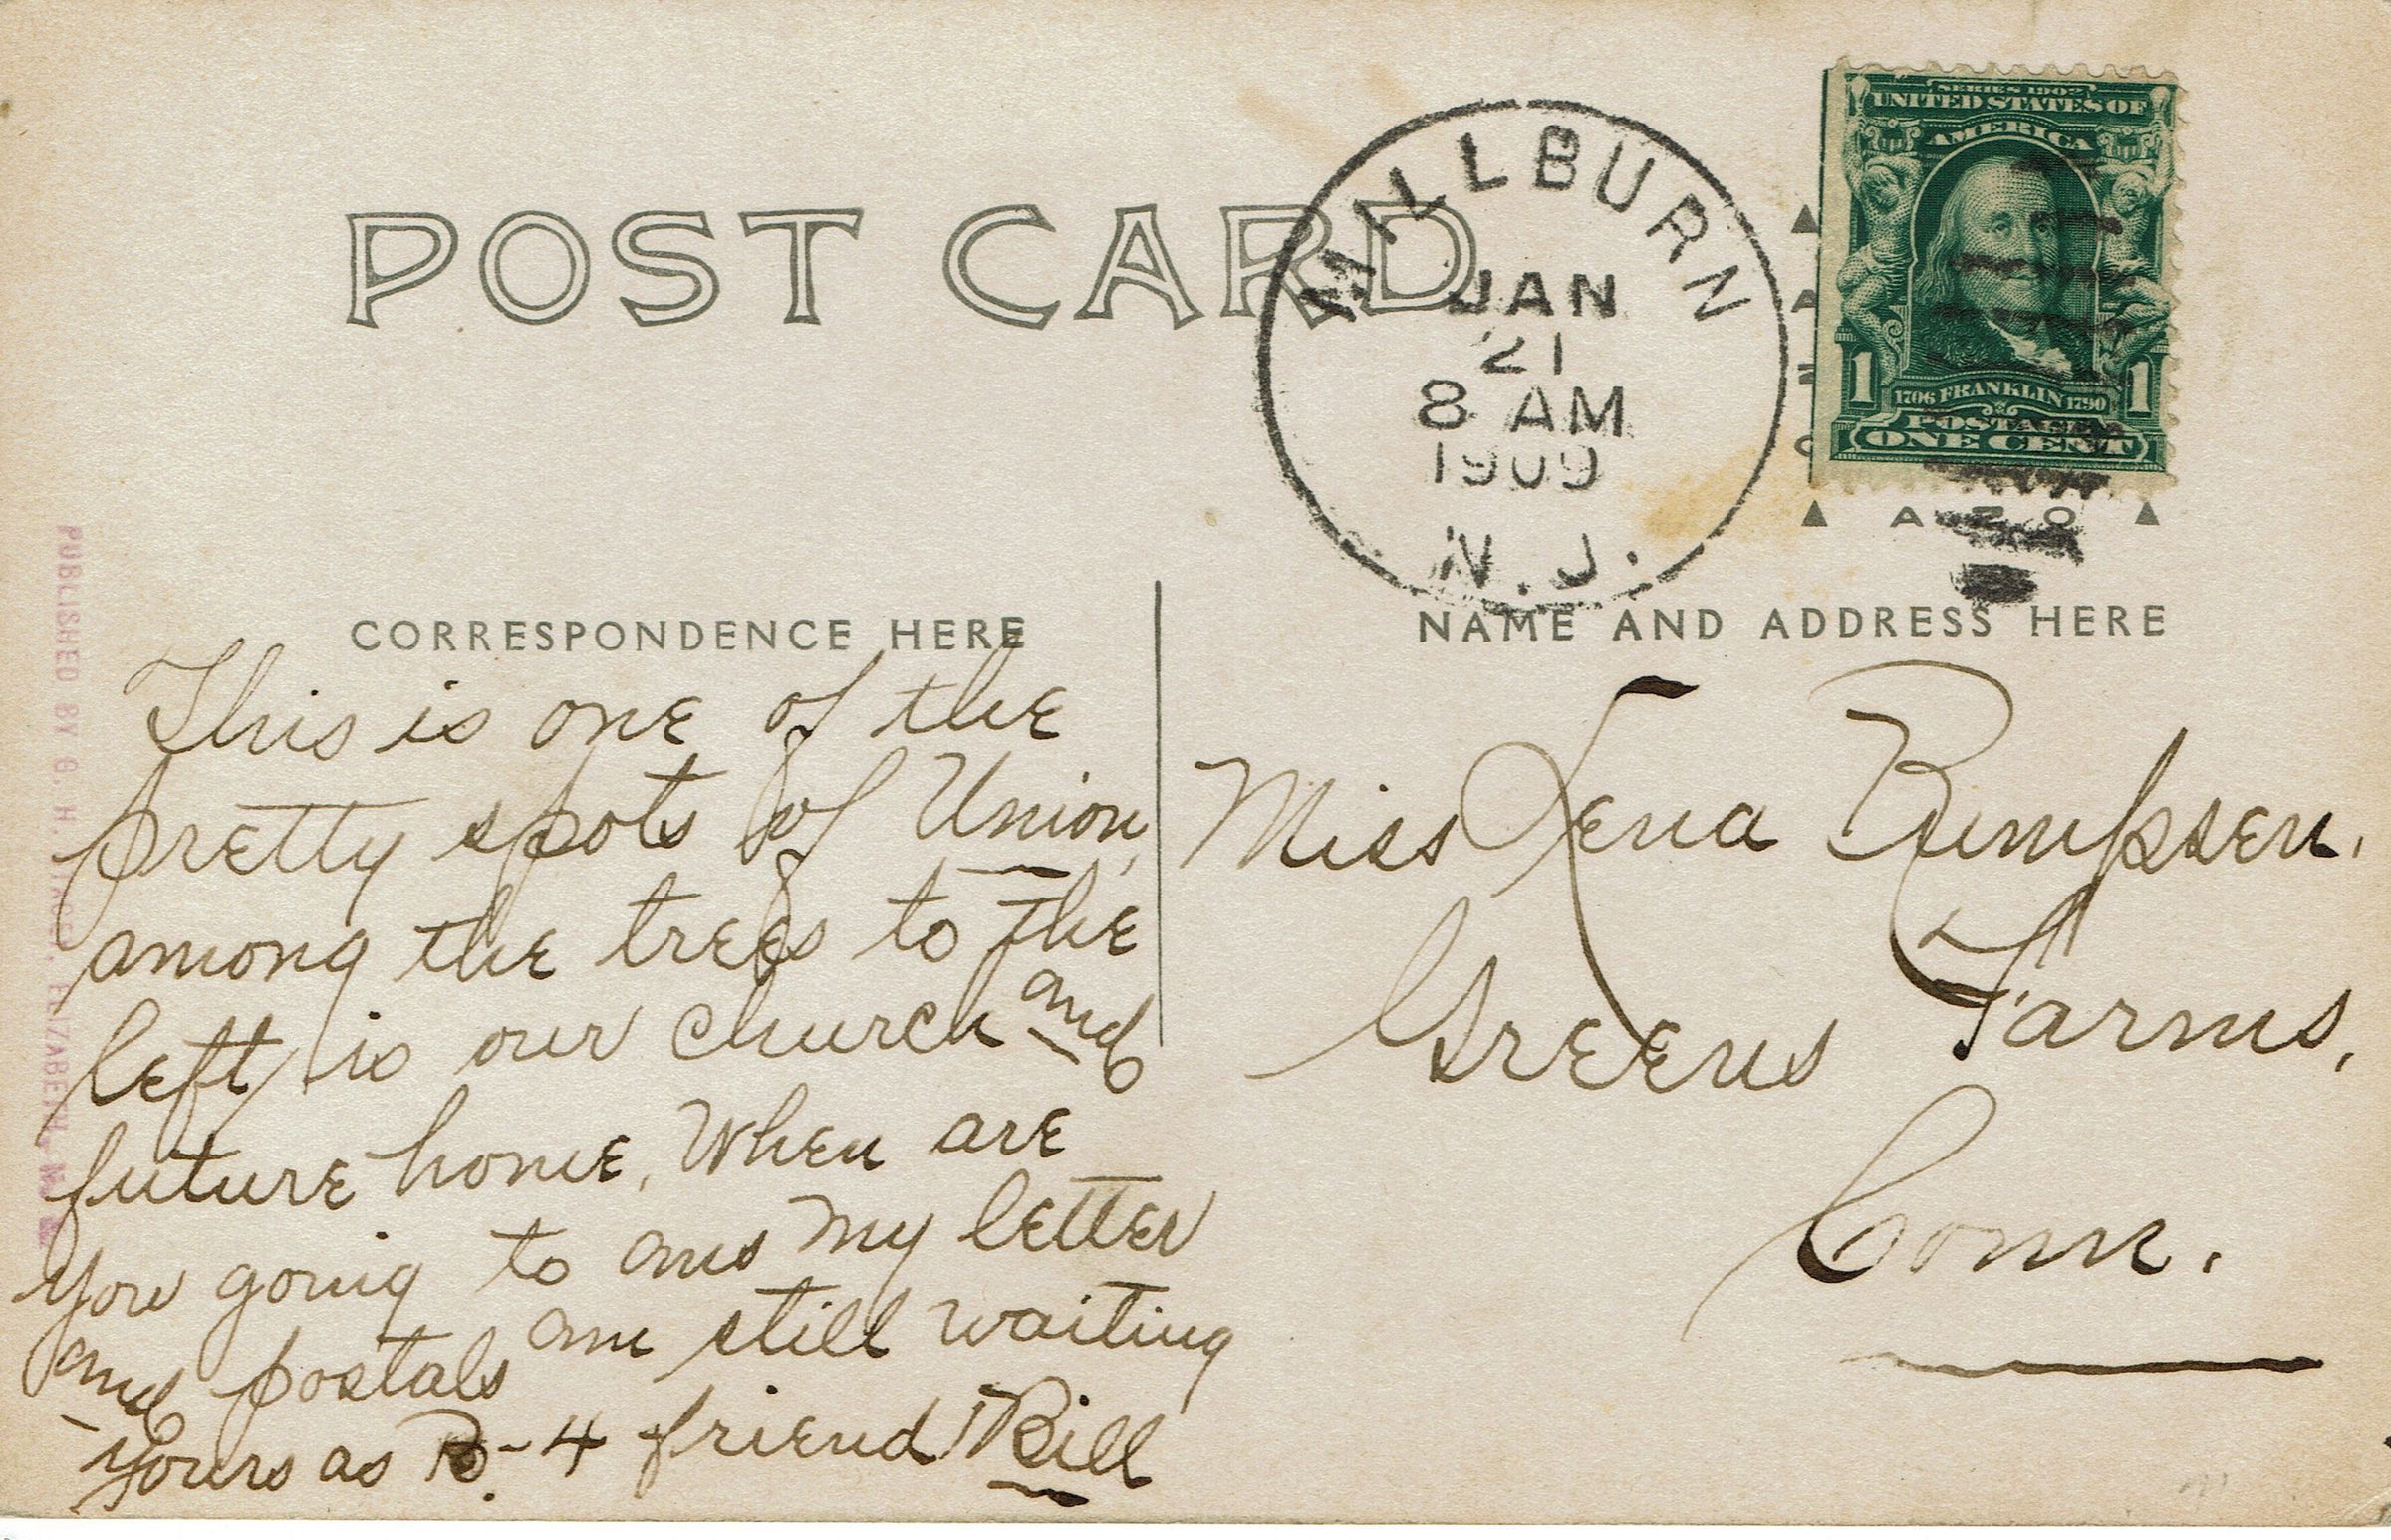 POST CARD
MILLBURN
JAN
21
8 AM
1909
N.J.
SERIES 1902
UNITED STATES OF
AMERICA
1 1706 FRANKLIN 1790 1
POSTAGE
ONE CENT
A Z O
CORRESPONDENCE HERE
NAME AND ADDRESS HERE
PUBLISHED BY G. H. ELIZABETH, N.J.
This is one of the
pretty spots of Union,
among the trees to the
left is our church and
future home. When are
you going to ans my letter
and postals am still waiting
Yours as B-4 friend Bill
Miss Lena Rumpsen.
Greens Farms,
Conn.